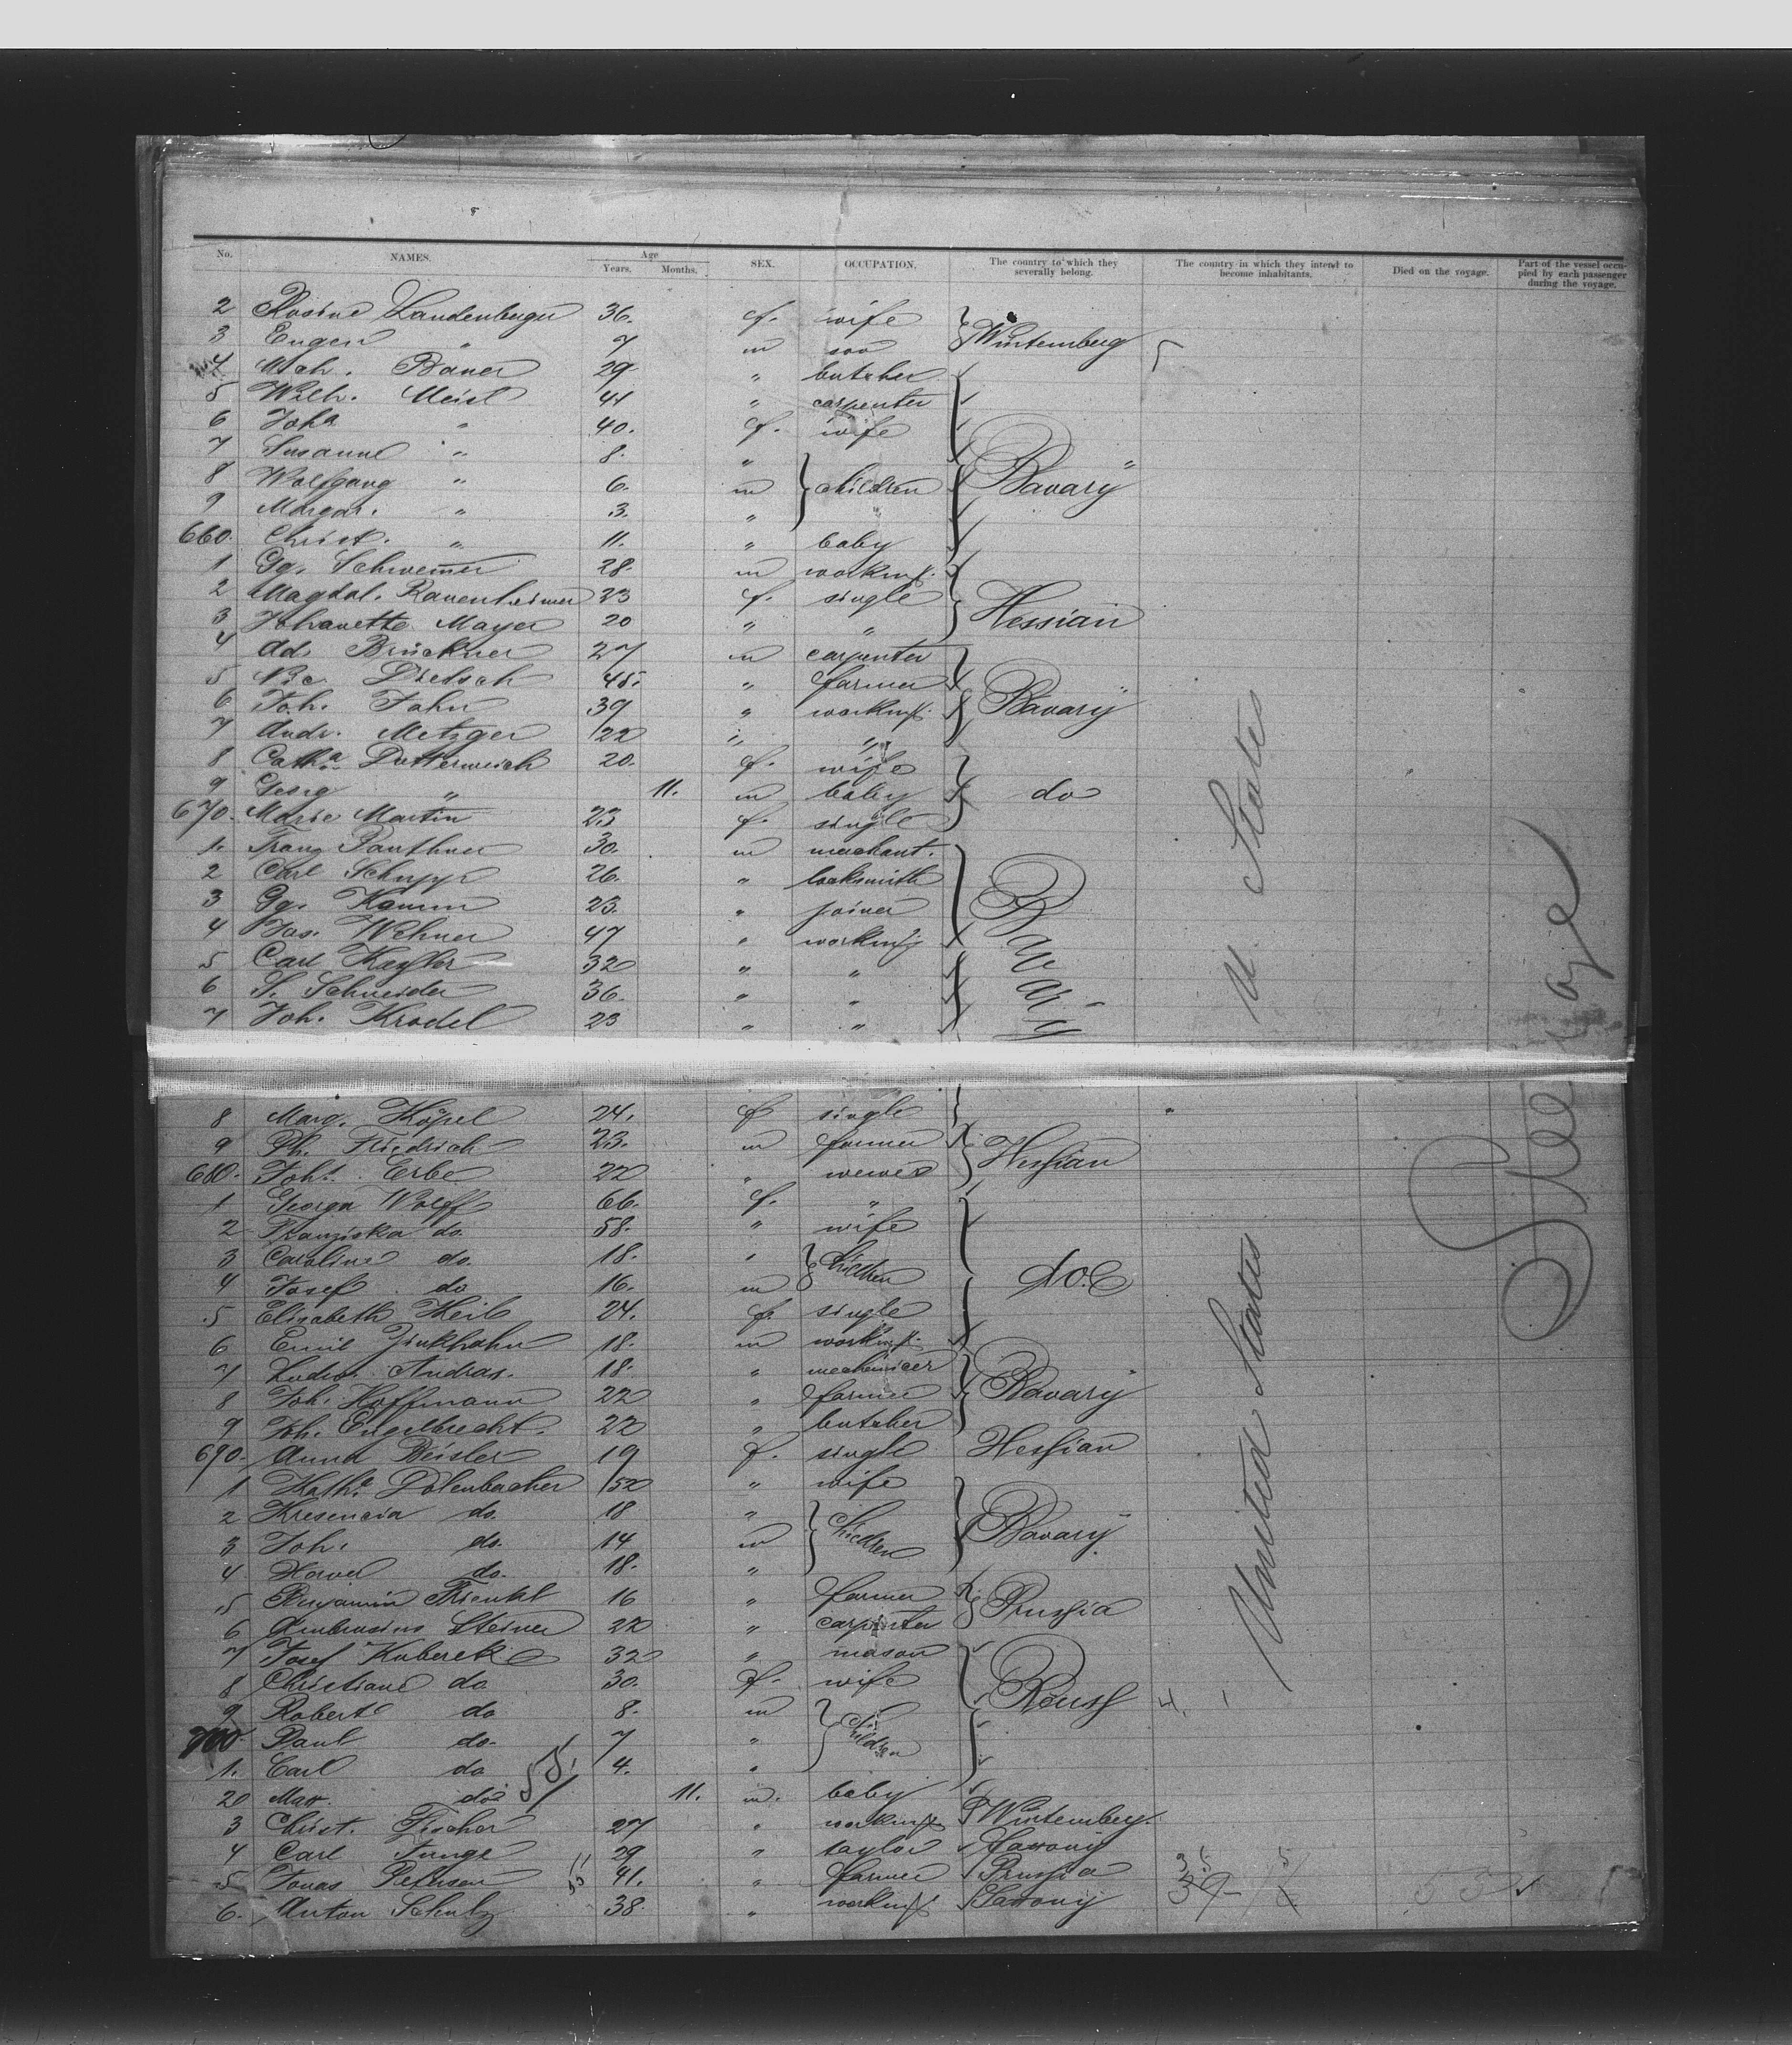 No. NAMES. Age Years. Months. SEX. OCCUPATION. The country to which they severally belong. The country in which they intend to become inhabitants. Died on the voyage. Part of the vessel occupied by each passenger during the voyage.
2 Rosine Landenberger 36. f. wife
3 Eugen " 7 m son Würtemberg 5
4 Mich. Bauer 29 " butcher
5 Wilh. Meisl 41 " carpenter
6 Joha " 40. f. wife
7 Susanne " 8. "
8 Wolfgang " 6. m children Bavarÿ
9 Margar. " 3. " "
660. Christ. " 11. " baby
1 Gg. Schwemer 28. m workmst.
2 Magdal. Ravenheimer 23 f. single
3 Johanette Mayer 20 " " Hessian
4 Ad. Brückner 27 m carpenter
5 Nic Dietsch 45. " farmer
6 Joh. Jahn 39 " workmst. Bavarÿ
7 Andr. Metzger 22 " "
8 Catha Dutterweich 20. f. wife
9 Georg " 11. m baby do
670. Marie Martin 23 f. single
1. Franz Panthner 30. m merchant.
2 Carl Schupp 26. " locksmith
3 Gg. Kamm 23. " joiner
4 Jos. Wehner 47 " workmst
5 Carl Kayler 32 " "
6 S. Schneider 36. " "
7 Joh. Krodel 23 " "
Bavarÿ
U. States
8 Marg. Köpel 24. f single
9 Ph. Friedrich 23. m farmer Hessian
680. Joh. Erbe 22 " wewer
1 Georga Wolff 66. f. "
2 Franziska do. 58. " wife
3 Caroline do. 18. " children
4 Josef do 16. m do.
5 Elisabeth Keib 24. f. single
6 Emil Zinkhahn 18. m workmst.
7 Ludw. Andras. 18. " mechanicer
8 Joh. Hoffmann 22 " farmer Bavarÿ
9 Joh. Engelbrecht. 22 " butcher
690. Anna Beisler 19 f. single Hessian
1 Katha Dolenbacher 52 " wife
2 Kresencia do. 18 " children
3 Joh. do. 14 m Bavarÿ
4 do. 18. "
5 Benjamin Frienkl 16 " farmer
6 Ambrosius Steiner 22 " carpenter Prussia
7 Josef Kuberek 32 " mason
8 Christiane do 30. f. wife
9 Robert do 8. m children Reuss 4. 1
700. Paul do. 7 "
1. Carl do 4. "
2 Max. do 11. m. baby
3 Christ. Fischer 27 " workmst Würtemberg.
4 Carl Junge 29 " taylor Saxony
5 Jonas Petersen 41. " farmer Prussia
6. Anton Schulz 38. " workmst. Saxony
United States
Steerage
53